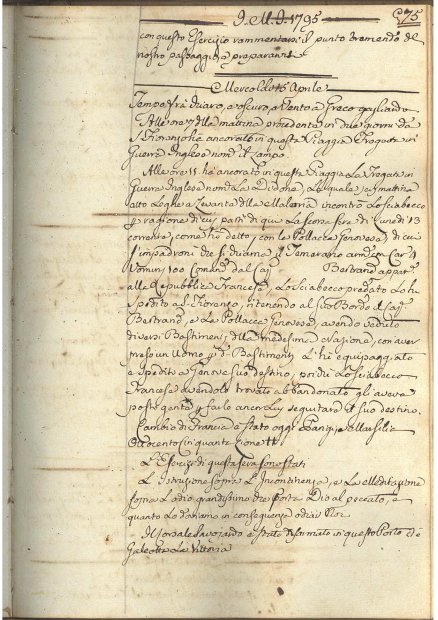 J. M. J. 1795 75
con questo Esercizio rammentarci il punto tremendo del
nostro passaggio, e prepararvisi
Mercoldì 15 Aprile
Tempo frà chiaro, e oscuro, e Vento a Greco gagliardo
Alle ore 7 della mattina procedente in due giorni da
S. Fiorenzo hè ancorato in questa Piaggia Fregata in
Guerra Inglese nom.
Alle ore 11 hè ancorato in questa Piaggia La Fregata in
Guerra Inglese nom. La Didone, La quale jeri mattina
alto Leghe a Levante della incontrò Lo Sciabecco
ragione di cui partì di qui La scorsa sera di Lunedì 13
corrente, come hò detto, con le Pollacche Genovesi, di cui
s'impadronì che si chiama il Temerario armato Car 4
Uomini 100 Coman. dal Cap Bertrand appar.
alla Republica Francese, Lo Sciabecco predato Lo hà
spedito a S. Fiorenzo, ritenendo al suo Bordo il Cap
Bertrand, e Le Pollacche Genovesi, avendo veduto
diversi Bastimenti della medesima Nazione, con aver
preso un Uomo p d. Bastimenti L'hà equipaggiato
e spedito a Genova suo destino, poiche Lo Sciabecco
Francese avendole trovate abbandonate gli aveva
posto gente p farlo ancor Lui seguitare il suo destino.
Cambio di Francia è stato oggi Parigi, e Marsilia
Ottocento cinquanta
L'Esercizi di questa sera sono stati
L'Istruzione sopra L'Incontinenza, e La Meditazione
sopra L'odio grandissimo che porta Dio al peccato, e
quanto Lo dobbiamo in conseguenza odiar Noi
Il Corsale Savojardo è stato disarmato in questo Porto che
Galeotta La Vittoria